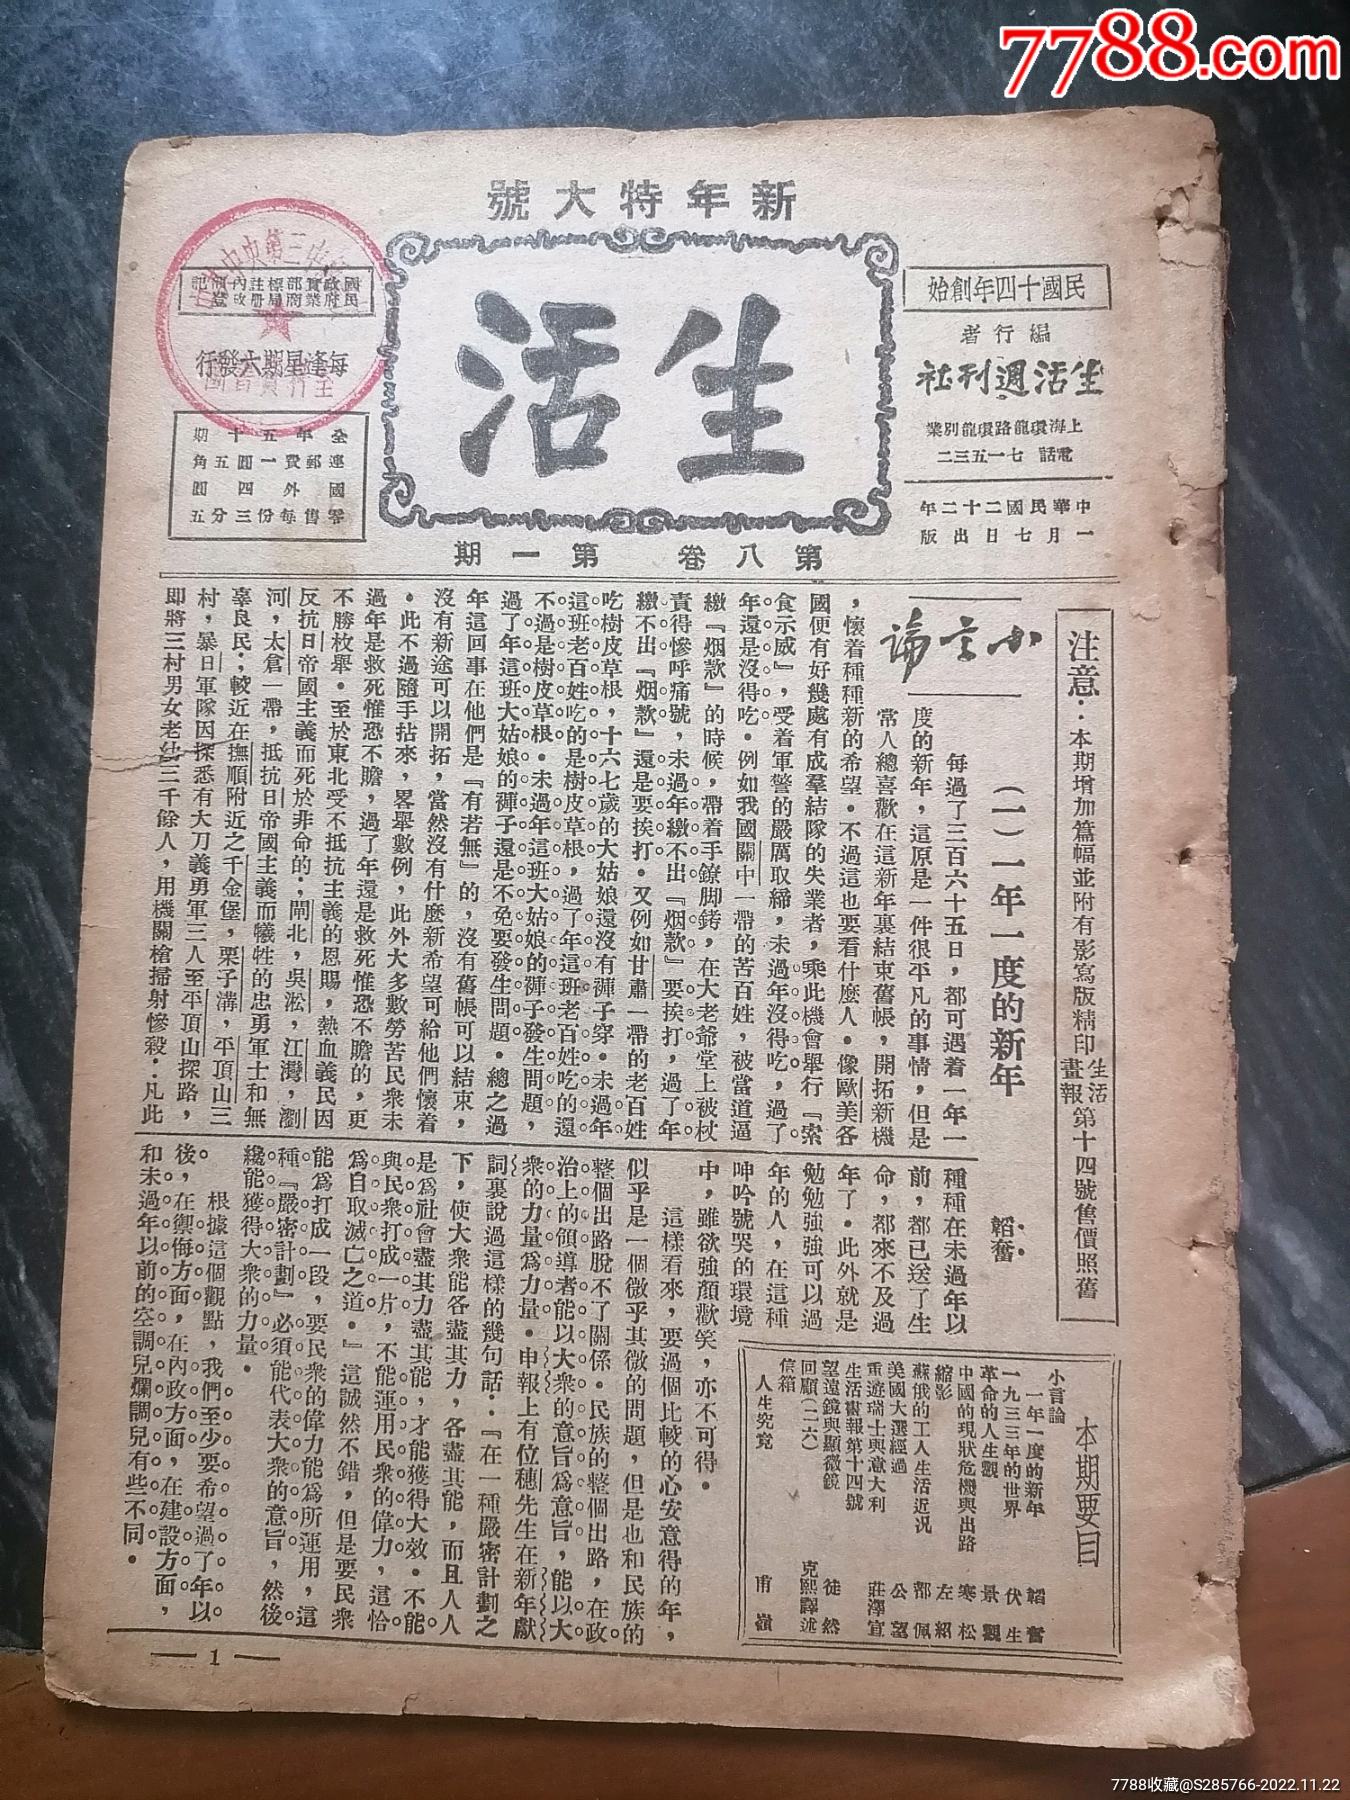 7788.com
新年特大號
生活
民國十四年創始
編行者
生活週刊社
上海環龍路環龍別業
電話 七一五三二
中華民國二十二年
一月七日出版
每逢星期六發行
全年五十期
連郵費一圓五角
國外四圓
零售每份三分五
第八卷 第一期
注意：本期增加篇幅並附有影寫版精印生活畫報第十四號售價照舊
小言論
（一）一年一度的新年
韜奮
每過了三百六十五日，都可遇着一年一
度的新年，這原是一件很平凡的事情，但是
常人總喜歡在這新年裏結束舊帳，開拓新機
，懷着種種新的希望。不過這也要看什麼人。像歐美各
國便有好幾處有成羣結隊的失業者，乘此機會舉行『索
食示威』，受着軍警的嚴厲取締，未過年沒得吃，過了
年還是沒得吃。例如我國關中一帶的苦百姓，被當道逼
繳『烟款』的時候，帶着手鐐脚銬，在大老爺堂上被杖
責得慘呼痛號，未過年繳不出『烟款』要挨打，過了年
繳不出『烟款』還是要挨打。又例如甘肅一帶的老百姓
吃樹皮草根，十六七歲的大姑娘還沒有褲子穿。未過年
這班老百姓吃的是樹皮草根，過了年這班老百姓吃的還
不過是樹皮草根。未過年這班大姑娘的褲子發生問題，
過了年這班大姑娘的褲子還是不免要發生問題。總之過
年這回事在他們是『有若無』的，沒有舊帳可以結束，
沒有新途可以開拓，當然沒有什麼新希望可給他們懷着
。此不過隨手拈來，畧舉數例，此外大多數勞苦民衆未
過年是救死惟恐不贍，過了年還是救死惟恐不贍的，更
不勝枚舉。至於東北受不抵抗主義的恩賜，熱血義民因
反抗日帝國主義而死於非命的；閘北，吳淞，江灣，瀏
河，太倉一帶，抵抗日帝國主義而犧牲的忠勇軍士和無
辜良民；較近在撫順附近之千金堡，栗子溝，平頂山三
村，暴日軍隊因探悉有大刀義勇軍三人至平頂山探路，
即將三村男女老幼三千餘人，用機關槍掃射慘殺：凡此
種種在未過年以
前，都已送了生
命，都來不及過
年了。此外就是
勉勉強強可以過
年的人，在這種
呻吟號哭的環境
中，雖欲強顏歡笑，亦不可得。
這樣看來，要過個比較的心安意得的年，
似乎是一個微乎其微的問題，但是也和民族的
整個出路脫不了關係。民族的整個出路，在政
治上的領導者能以大衆的意旨爲意旨，能以大
衆的力量爲力量。申報上有位穗先生在新年獻
詞裏說過這樣的幾句話：『在一種嚴密計劃之
下，使大衆能各盡其力，各盡其能，而且人人
是爲社會盡其力盡其能，才能獲得大效。不能
與民衆打成一片，不能運用民衆的偉力，這恰
爲自取滅亡之道。』這誠然不錯，但是要民衆
能爲打成一段，要民衆的偉力能爲所運用，這
種『嚴密計劃』必須能代表大衆的意旨，然後
纔能獲得大衆的力量。
根據這個觀點，我們至少要希望過了年以
後，在禦侮方面，在內政方面，在建設方面，
和未過年以前的空調兒爛調兒有些不同。
本期要目
小言論
一年一度的新年 韜奮
一九三三年的世界 伏生
革命的人生觀 景觀
中國的現狀危機與出路 寒松
縮影 左紹
蘇俄的工人生活近况 都佩
美國大選經過 公望
重遊瑞士與意大利 莊澤宣
生活畫報第十四號
望遠鏡與顯微鏡 徒然
回顧（二六） 克熙譯述
信箱
人生究竟
1
7788收藏@S285766-2022.11.22